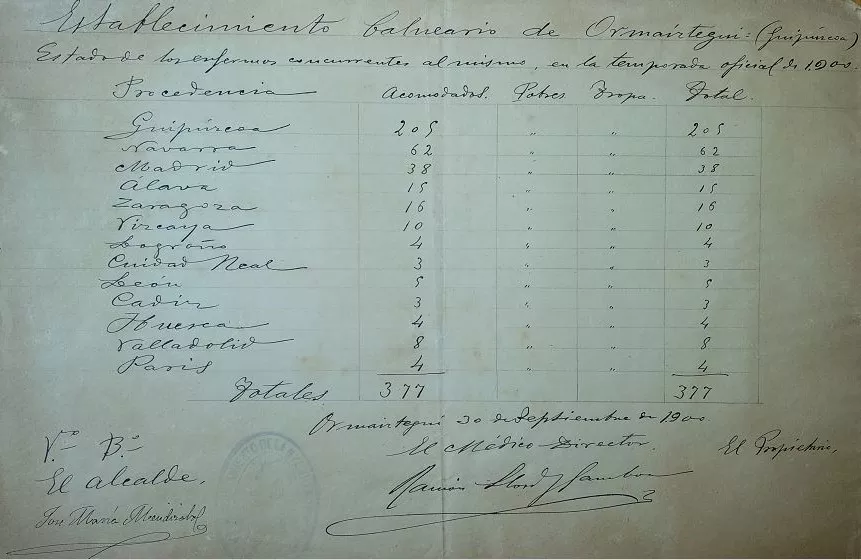 Establecimiento balneario de Ormáiztegui: (Guipúzcoa)
Estado de los enfermos concurrentes al mismo, en la temporada oficial de 1900.
Procedencia Acomodados. Pobres Tropa. Total.
Guipúzcoa 205 " " 205
Navarra 62 " " 62
Madrid 38 " " 38
Álava 15 " " 15
Zaragoza 16 " " 16
Vizcaya 10 " " 10
Logroño 4 " " 4
Cuidad Real 3 " " 3
León 5 " " 5
Cadiz 3 " " 3
Huesca 4 " " 4
Valladolid 8 " " 8
Paris 4 " " 4
Totales 377 377
Ormaiztegui 30 de Septiembre de 1900
V.º B.º
El Médico-Director.
El Propietario,
El alcalde,
Ramón Llord y
José María